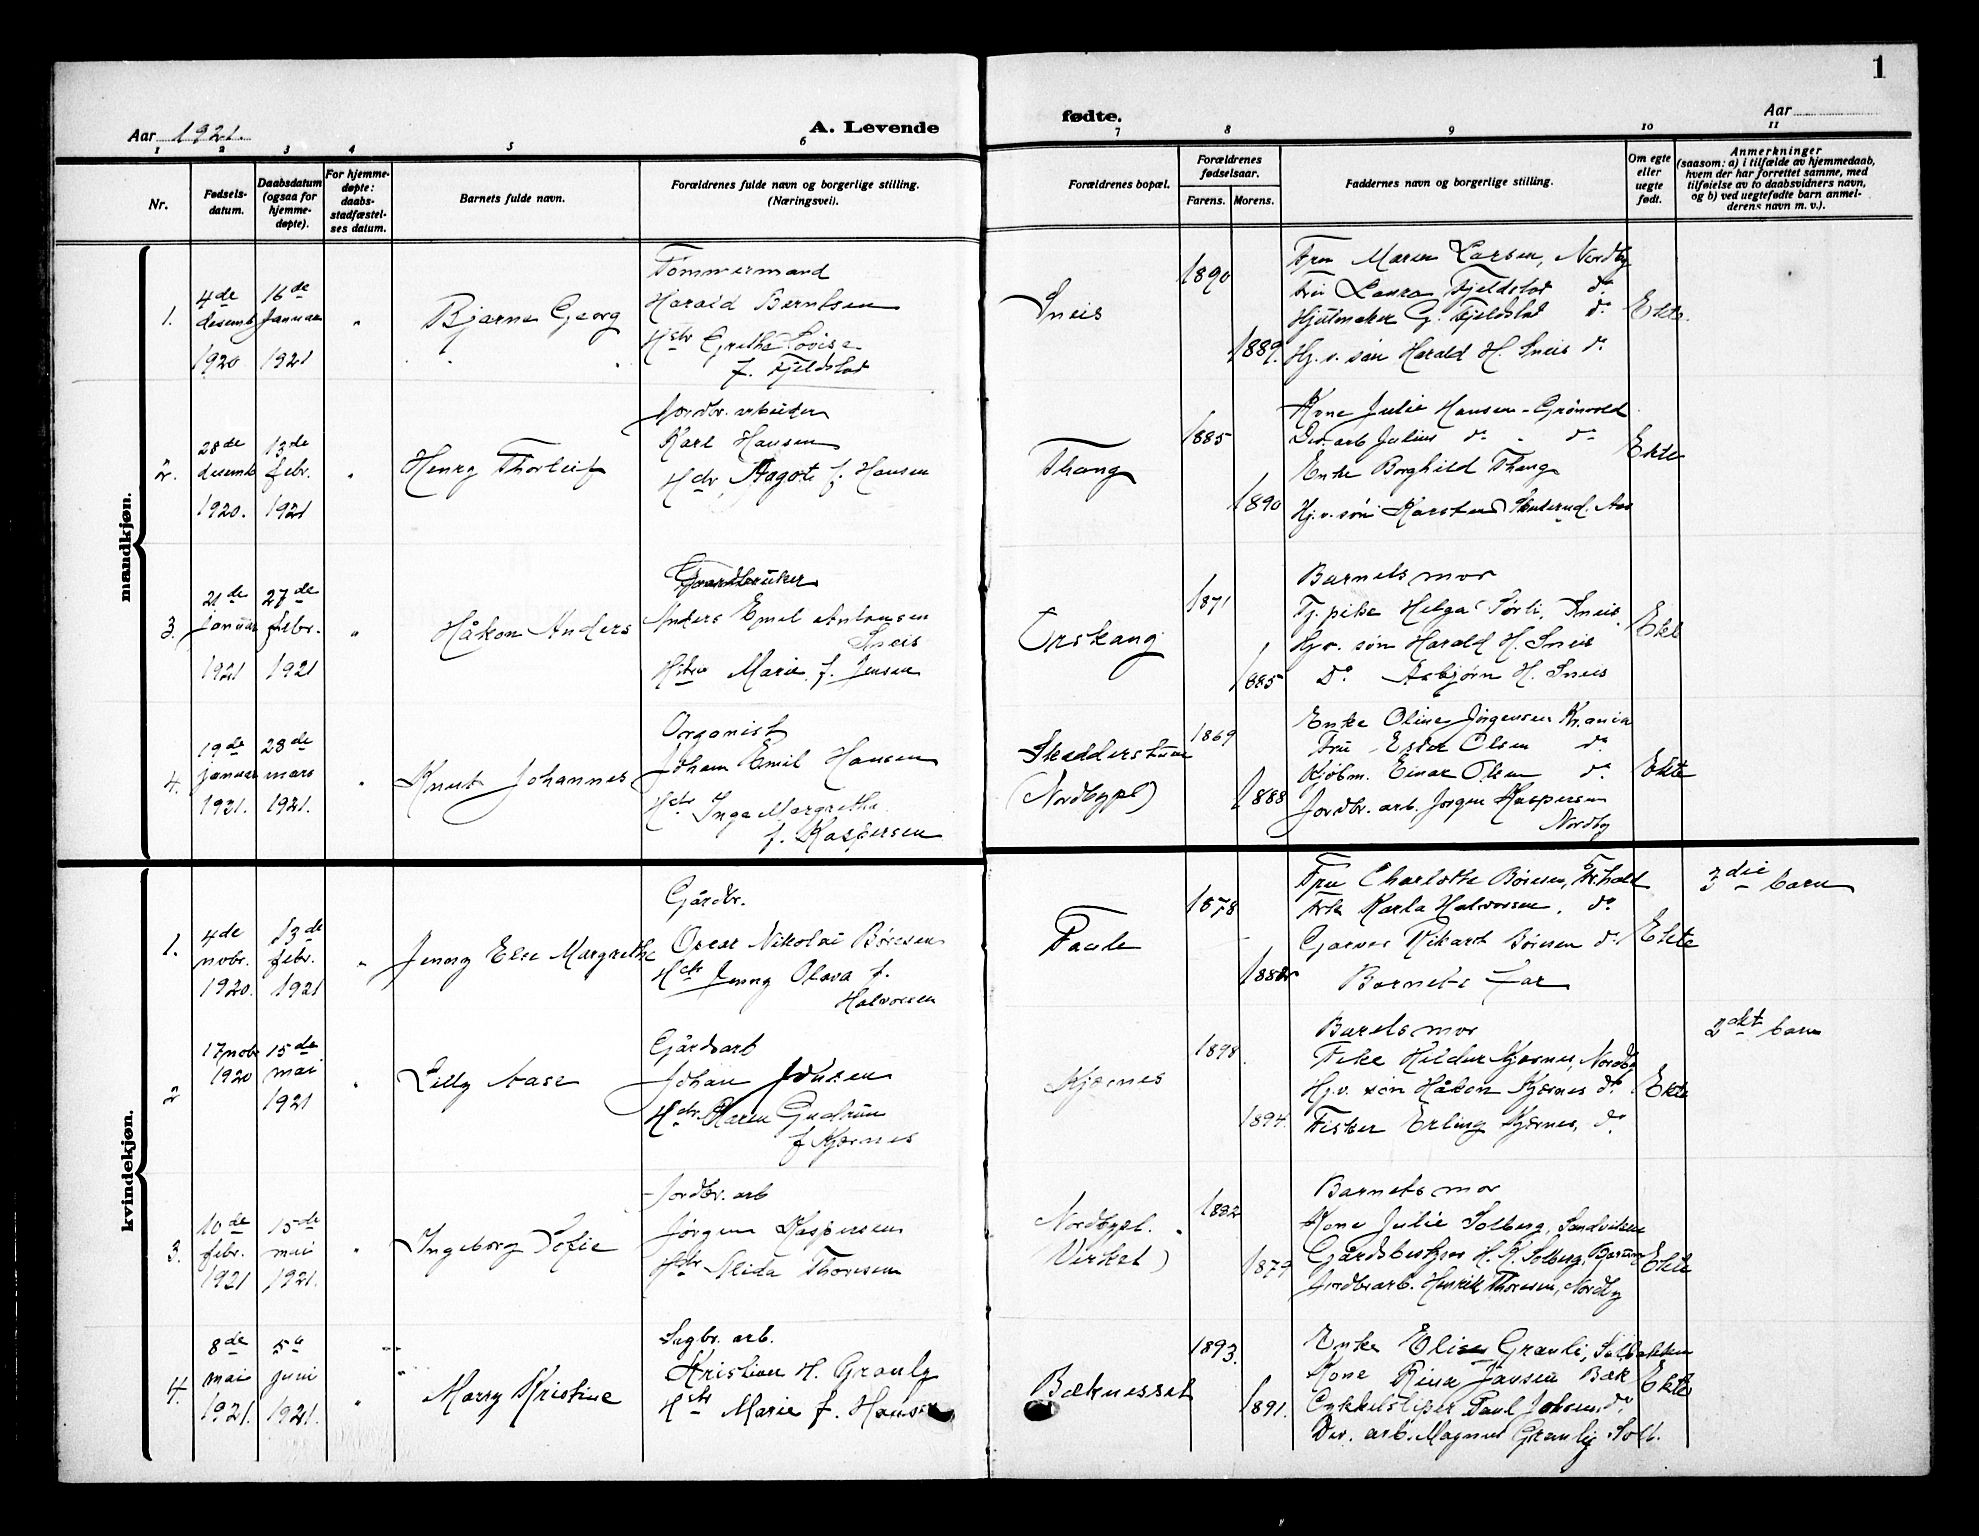 1
Aar 1921.
A. Levende
fødte.
Aar
1
2
3
4
5
6
7
8
9
10
11
Nr.
Fødsels-
datum.
Daabsdatum
(ogsaa for
hjemme-
døpte).
For hjemme-
døpte:
daabs-
stadfæstel-
ses datum.
Barnets fulde navn.
Forældrenes fulde navn og borgerlige stilling.
(Næringsvei).
Forældrenes bopæl.
Forældrenes
fødselsaar.
Farens.
Morens.
Faddernes navn og borgerlige stilling.
Om egte
eller
uegte
født.
Anmerkninger
(saasom: a) i tilfælde av hjemmedaab,
hvem der har forrettet samme, med
tilføielse av to daabsvidners navn,
og b) ved uegtefødte barn anmel-
derens navn m. v.).
mandkjøn.
1.
4de
desemb
1920
16de
Januar
1921
"
Bjarne Georg
Tømmermand
Harald Berntsen
Hstr Grethe Lovise
f. Fjeldstad
Sneis
1890
1889.
Fru Maren Larsen, Nordby
Frk Laura Fjeldstad do
Hjulmaker G. Fjeldstad do
Hj. v. søn Harald H. Sneis do
Ekte.
2.
28de
desemb
1920.
13de
febr.
1921
"
Henry Thorleif
Jordbr. arbeider
Karl Hansen
Hstr Aagot f. Hansen
Thang
1885
1890
Kone Julie Hansen - Grønvold
Div. arb Julius do " do
Enke Borghild Thang
Hj. v. søn Karsten Skuterud. Aas
Ekte
3.
21de
Januar
1921
27de
febr.
1921
"
Håkon Anders
Gaardbruker
Anders Emil Antonsen
Sneis
Hstru Marie f. Jensen
Orskaug
1871
1885
Barnets mor
Tj. pike Helga Sørli, Sneis.
Hj v. søn Harald H. Sneis
Do Asbjørn H. Sneis
Ekt
4.
19de
Januar
1921.
28de
mars
1921.
"
Knut Johannes
Organist
Johan Emil Hansen
Hstr Inga Margrethe
f. Kaspersen
(Nordbypl)
1869
1888
Enke Oline Jørgensen Kr.ania
Fru Ester Olsen do
Kjøbm. Einar Olsen do
Jordbr. arb. Jørgen Kaspersen
Nordby
Ekte
kvindekjøn.
1.
4de
nobr.
1920.
13de
febr.
1921
"
Jenny Else Margrethe
Gårdbr.
Oscar Nikolai Børesen
Hstr Jenny Olava f.
Halvorsen
Faale
1878
1882
Fru Charlotte Børesen,
Frk Karla Halvorsen, do
Garver Rikart Børesen do
Barnets far
Ekte
3die barn
2
17 nobr
1920
15de
mai
1921
"
Lilly Aase
Gårdsarb
Johan Johnsen
Hstr Karen Gudrun
f Kjærnes
Kjærnes
1898
1894.
Barets mor
Pike Hildur Kjærnes, Nordby
Hj. v. søn Håkon Kjærnes do
Fisker Erling Kjærnes, do
Ekte
2det barn
3.
10de
febr.
1921
15de
mai
1921.
"
Ingeborg Sofie
Jordbr. arb
Jørgen Kaspersen
Hstr Alida Thoresen
Nordbypl.
Virket)
1882
1879
Barnets mor
Kone Julie Solberg, Sandviken
Gårdsbestyrer H. K. Solberg, Bærum
Jordbrarb. Henrik Thoresen, Nordby
Ekte
4.
8de
mai
1921.
5te
juni
1921.
"
Marry Kristine
Sagbr. arb.
Kristian H. Graulg
Hstr Marie f. Hansen
Bæknesset
1893.
1891.
Enke Elise Grauli, Solbakken
Kone Rina Jansen Bæk
Cykkelsliper Paul Johsen, do
Div. arb. Magnus Graulig Solb.
Ekte